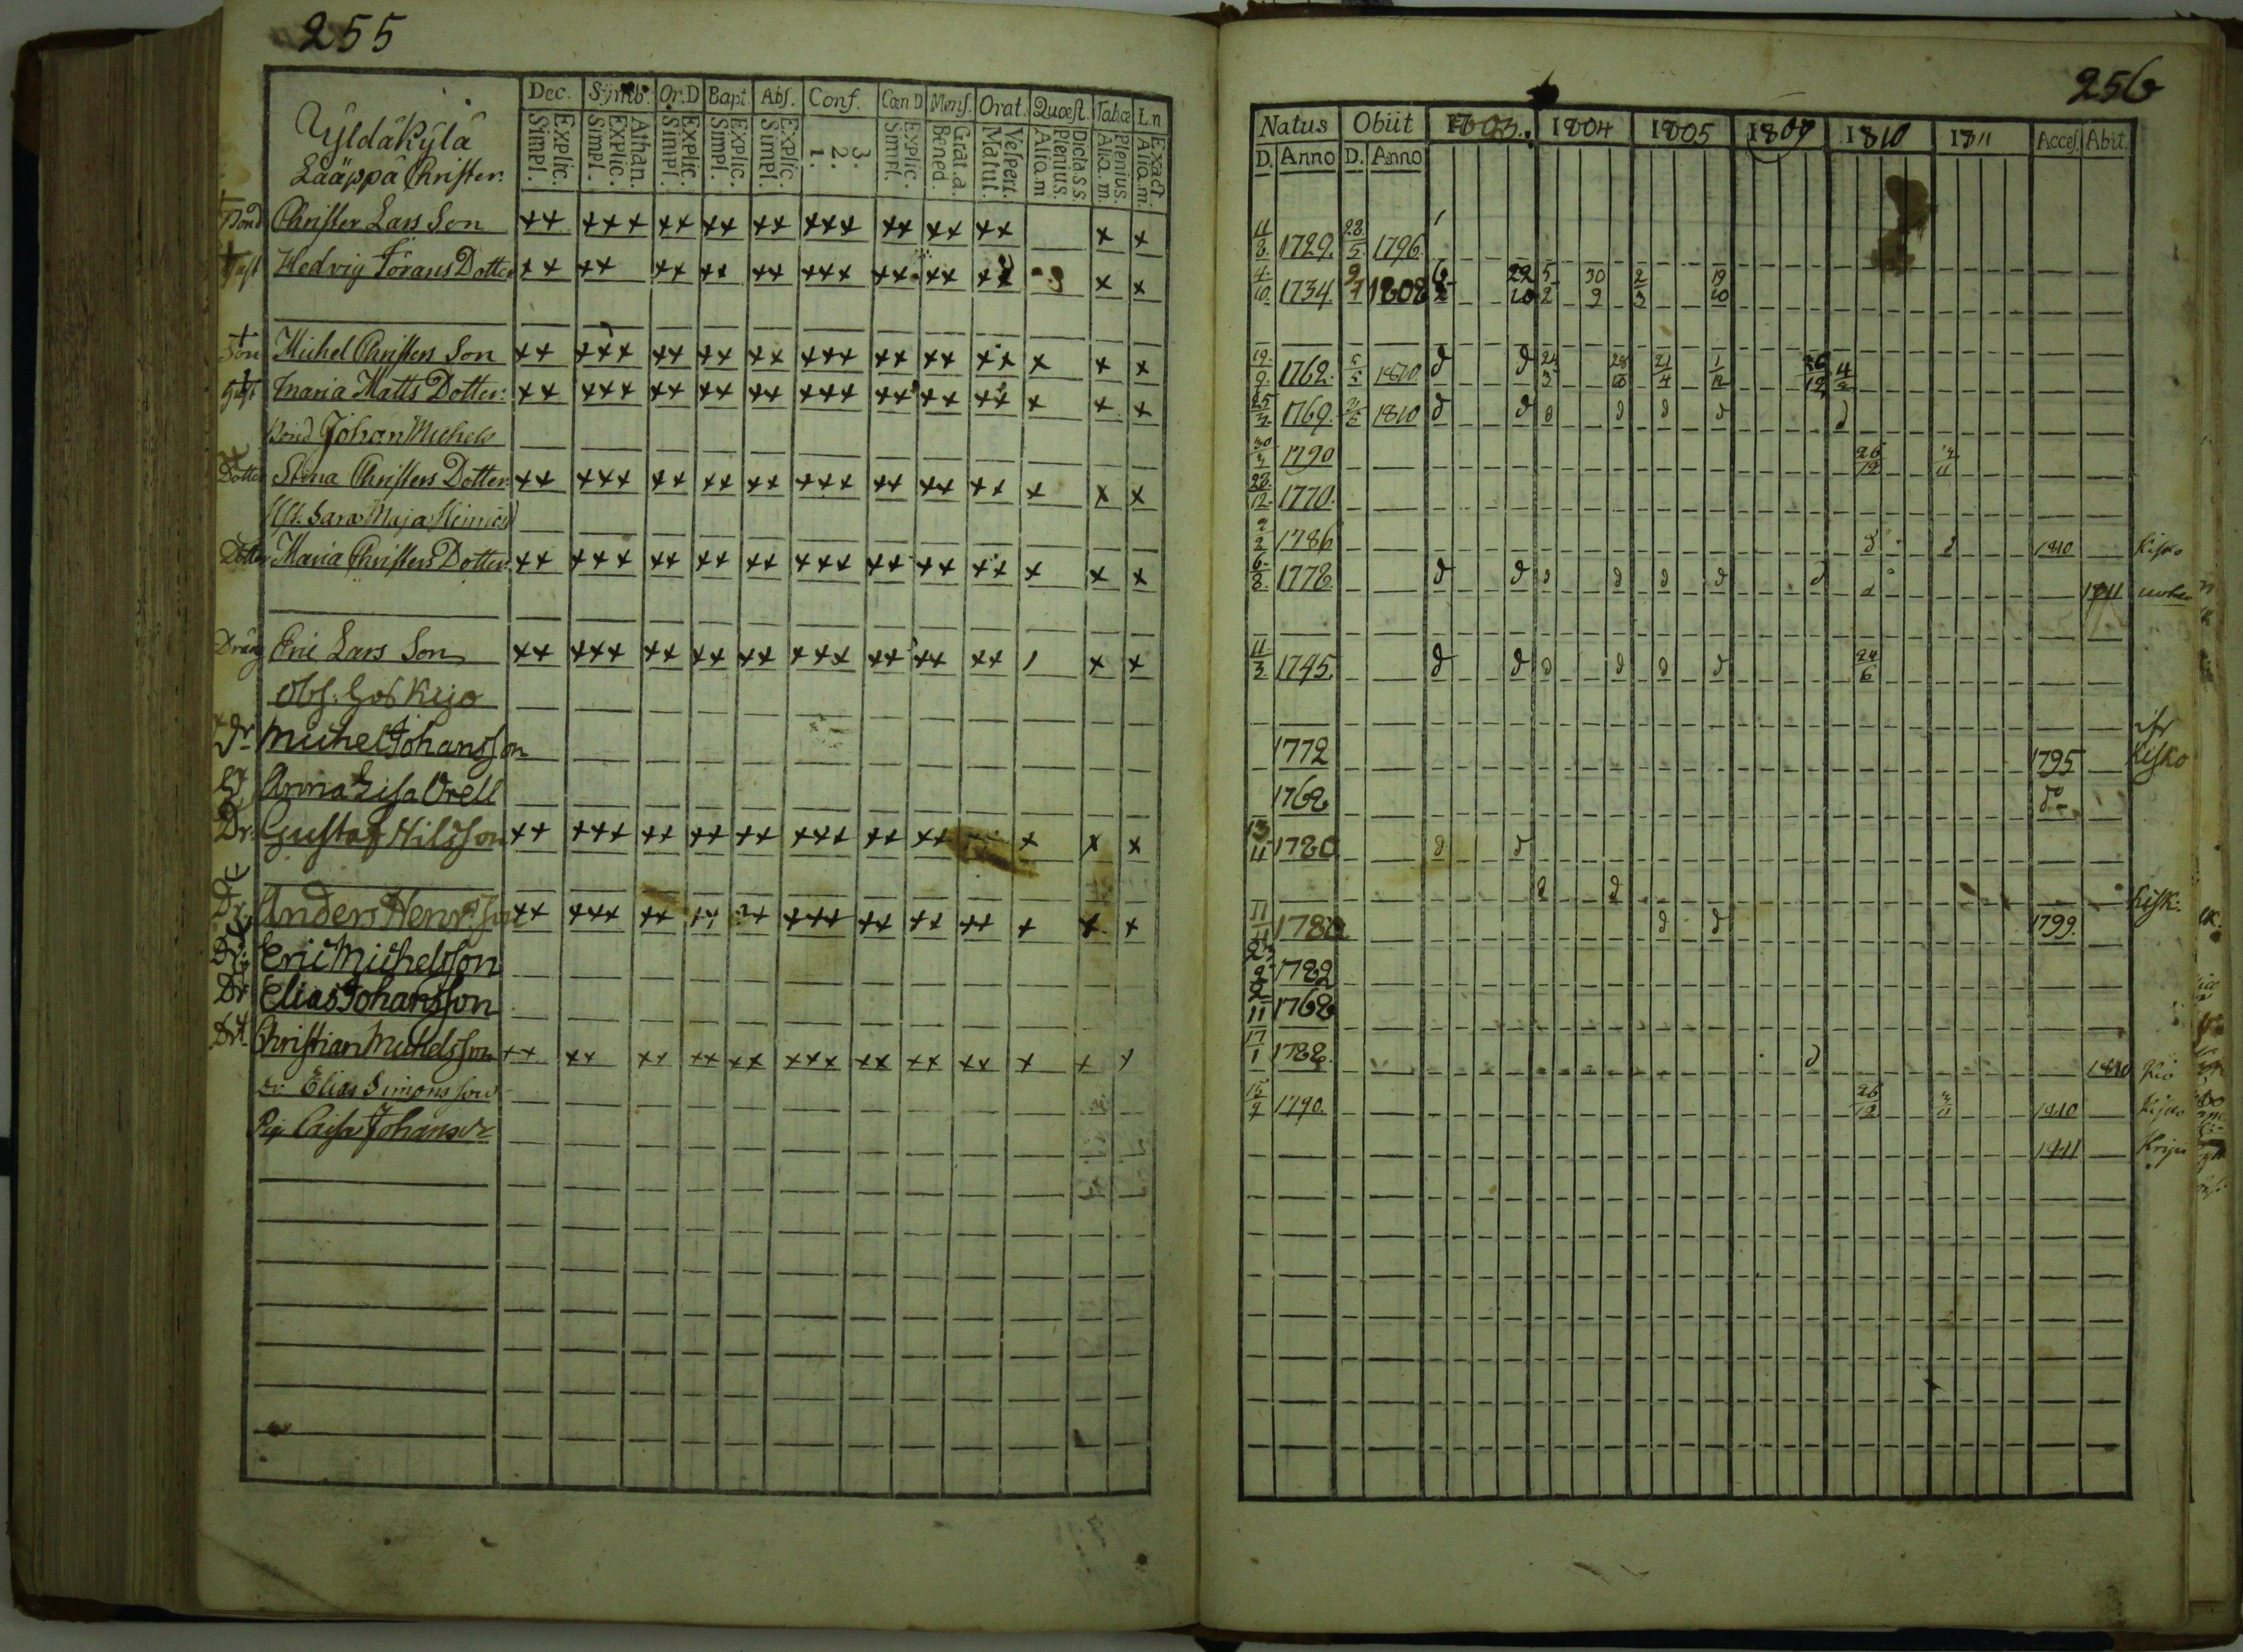 255
Yldäkylä
Lääppä Christer.
Dec. Symb. Or.D Bapt. Abs. Conf. Cœn D Mens. Orat. Quœst. Tabœ L.n
Explic. Simpl. Athan. Explic. Simpl. Explic. Simpl. Explic. Simpl. Explic. Simpl. 3. 2. 1. Explic. Simpl. Grat.a. Bened. Vespert. Matut. Dicta s s. Plenius. Aliq.m Plenius. Aliq.m. Exact. Aliq.m.
Bond Christer Lars Son ×× ××× ×× ×× ×× ××× ×× ×× ×× × ×
Hedvig Jörans Dotter ×× ×× ×× ×× ×× ××× ×× ×× ×× × ×
Son Michel Christers Son ×× ××× ×× ×× ×× ××× ×× ×× ×× × × ×
Maria Matts Dotter ×× ××× ×× ×× ×× ××× ×× ×× ×× × × ×
Bond Johan Michels
Dotter Stina Christers Dotter ×× ××× ×× ×× ×× ××× ×× ×× ×× × × ×
Sara Maja
Dotter Maria Christers Dotter ×× ××× ×× ×× ×× ××× ×× ×× ×× × × ×
Dräng Eric Lars Son ×× ××× ×× ×× ×× ××× ×× ×× ×× / × ×
Obs.
Dr Michel Johansson
Anna Lisa Orell
Dr. Gustaf Nilsson ×× ××× ×× ×× ×× ××× ×× ×× × × ×
Dr. Anders Henr.Son ×× ××× ×× ×× ×× ××× ×× ×× ×× × × ×
Dr. Eric Michelsson
Dr Elias Johansson
Dr. Christian Michelsson ×× ×× ×× ×× ×× ××× ×× ×× ×× × × ×
Dr Elias Simonsson
Pig. Caisa Johansdr
256
Natus Obiit 1803. 1804 1805 1809 1810 1811 Acces. Abiit.
D. Anno D. Anno
11/8. 1729. 28/5. 1796.
4/10. 1734. 9/7 1808 6/2 22/10 5/2 30/9 2/3 19/10
19/9. 1762. 5/5 1810 d d 24/3 28/10 21/4 1/12 26/12 4/2
25/3. 1769. 1810 d d d d d d d
30/3 1790 26/12
28/12. 1770.
2/2 1786 d d 1810 Kisko
6/8. 1778. d d d d d d d d 1811
11/3. 1745. d d d d d d 24/6
1772 1795 ifr Kisko
1768 do
13/11 1780 d d
d d
11/11 1780 d d 1799. Kisk.
23/2 1782
2/11 1768
17/1 1788. d 1810
15/9 1790. 26/12 1810 Kisko
1811